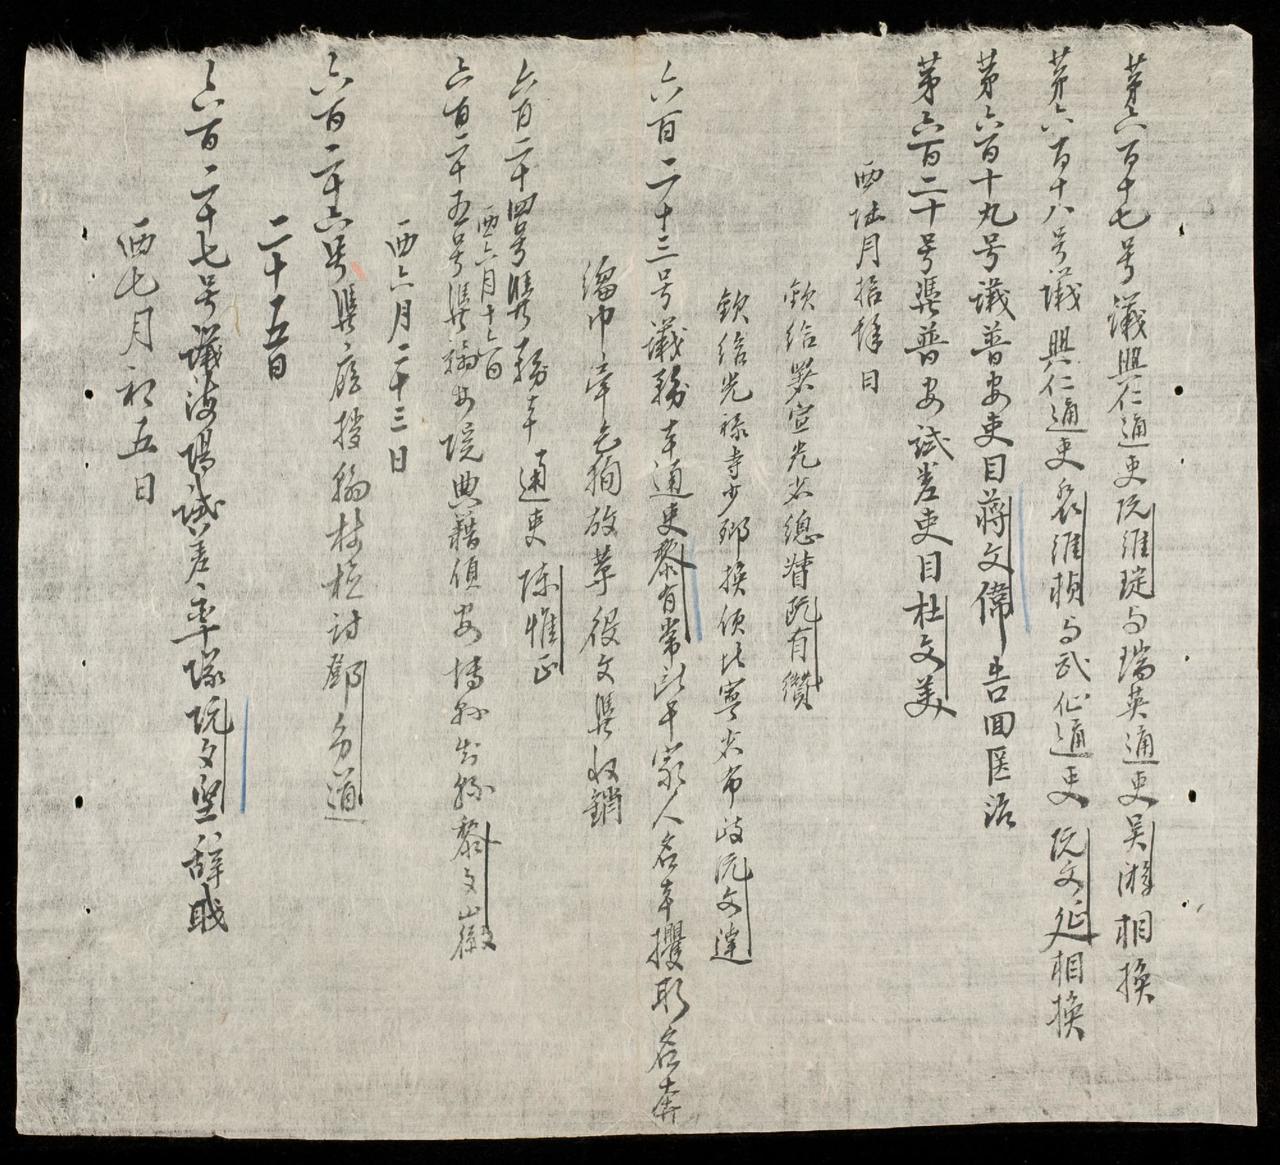 第六百十七号議興仁通吏阮維琔与瑞英通吏吳游相換
第六百十八号議興仁通吏袁維楨与武仙通吏阮文延相換
第六百十九号議普安吏目蔣文偉告回医治
第六百二十号準普安試差吏目杜文美
酉陆月拾肆日
欽給署宣光省總督阮有鑽
欽給光祿寺少卿換倅北寧省布政阮文達
六百二十三号議務本通吏黎有常此干家人名本攫取名本
巾牽乞徇放革役文準收銷
六百二十四号準務本通吏陳惟正
酉六月十六日
六百二十五号準安院典籍偵安博孫黎文嶽
酉六月二十三日
六百二十六号準底授翰林檢討鄧分通
二十五日
六百二十七号議海陽試差率隊阮文堅辞职
酉七月初五日